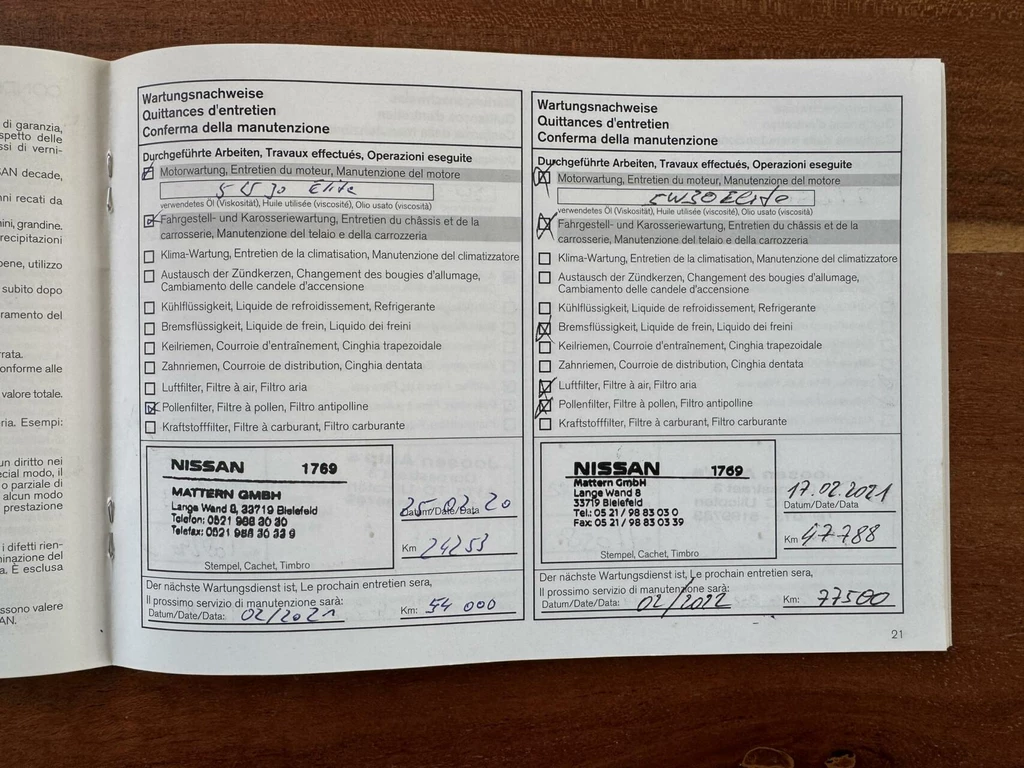 di garanzia,
spetto delle
ssi di verni-
AN decade,
nni recati da
nini, grandine.
recipitazioni
pene, utilizzo
subito dopo
ramento del
rrata.
onforme alle
valore totale.
ria. Esempi:
un diritto nei
ecial modo, il
o parziale di
alcun modo
prestazione
i difetti rien-
minazione del
a. È esclusa
ssono valere
AN.
Wartungsnachweise
Quittances d'entretien
Conferma della manutenzione
Durchgeführte Arbeiten, Travaux effectués, Operazioni eseguite
Motorwartung, Entretien du moteur, Manutenzione del motore
30 Elite
verwendetes Öl (Viskosität), Huile utilisée (viscosité), Olio usato (viscosità)
Fahrgestell- und Karosseriewartung, Entretien du châssis et de la
carrosserie, Manutenzione del telaio e della carrozzeria
Klima-Wartung, Entretien de la climatisation, Manutenzione del climatizzatore
Austausch der Zündkerzen, Changement des bougies d'allumage,
Cambiamento delle candele d'accensione
Kühlflüssigkeit, Liquide de refroidissement, Refrigerante
Bremsflüssigkeit, Liquide de frein, Liquido dei freini
Keilriemen, Courroie d'entraînement, Cinghia trapezoidale
Zahnriemen, Courroie de distribution, Cinghia dentata
Luftfilter, Filtre à air, Filtro aria
Pollenfilter, Filtre à pollen, Filtro antipolline
Kraftstofffilter, Filtre à carburant, Filtro carburante
NISSAN 1769
MATTERN GMBH
Lange Wand 8, 33719 Bielefeld
Telefon: 0521 988 30 30
Telefax: 0521 988 30 33 9
Stempel, Cachet, Timbro
25 02 20
Datum/Date/Data
Km 24253
Der nächste Wartungsdienst ist, Le prochain entretien sera,
Il prossimo servizio di manutenzione sarà:
Datum/Date/Data: 02/2021 Km: 54 000
Wartungsnachweise
Quittances d'entretien
Conferma della manutenzione
Durchgeführte Arbeiten, Travaux effectués, Operazioni eseguite
Motorwartung, Entretien du moteur, Manutenzione del motore
5W30 Elite
verwendetes Öl (Viskosität), Huile utilisée (viscosité), Olio usato (viscosità)
Fahrgestell- und Karosseriewartung, Entretien du châssis et de la
carrosserie, Manutenzione del telaio e della carrozzeria
Klima-Wartung, Entretien de la climatisation, Manutenzione del climatizzatore
Austausch der Zündkerzen, Changement des bougies d'allumage,
Cambiamento delle candele d'accensione
Kühlflüssigkeit, Liquide de refroidissement, Refrigerante
Bremsflüssigkeit, Liquide de frein, Liquido dei freini
Keilriemen, Courroie d'entraînement, Cinghia trapezoidale
Zahnriemen, Courroie de distribution, Cinghia dentata
Luftfilter, Filtre à air, Filtro aria
Pollenfilter, Filtre à pollen, Filtro antipolline
Kraftstofffilter, Filtre à carburant, Filtro carburante
NISSAN 1769
Mattern GmbH
Lange Wand 8
33719 Bielefeld
Tel.: 05 21 / 98 83 03 0
Fax: 05 21 / 98 83 03 39
Stempel, Cachet, Timbro
17.02.2021
Datum/Date/Data
Km 47788
Der nächste Wartungsdienst ist, Le prochain entretien sera,
Il prossimo servizio di manutenzione sarà:
Datum/Date/Data: 02/2022 Km: 77500
21